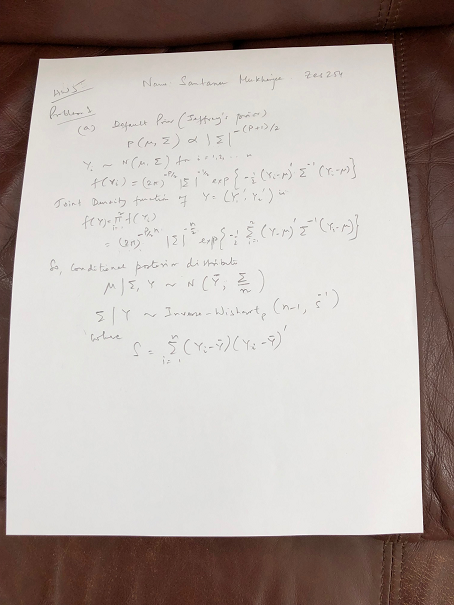 HW5 Name Santanu Mukherjee
Problem 3
(a) Default Prior (Jeffrey's prior)
P(μ, Σ) ∝ |Σ|^{-(p+1)/2}
Y_i ~ N(μ, Σ) for i = 1, 2, ... n
f(Y_i) = (2π)^{-p/2} |Σ|^{-1/2} exp{-1/2 (Y_i-μ)' Σ^{-1} (Y_i-μ)}
Joint Density function of Y = (Y_1', Y_2') is
f(Y) = Π_{i=1}^{n} f(Y_i)
= (2π)^{-p/2 n} |Σ|^{-n/2} exp{-1/2 Σ_{i=1}^{n} (Y_i-μ)' Σ^{-1} (Y_i-μ)}
So, conditional posterior distribution
μ | Σ, Y ~ N(Ȳ, Σ/n)
Σ | Y ~ Inverse-Wishart_p (n-1, S^{-1})
where
S = Σ_{i=1}^{n} (Y_i-Ȳ)(Y_i-Ȳ)'